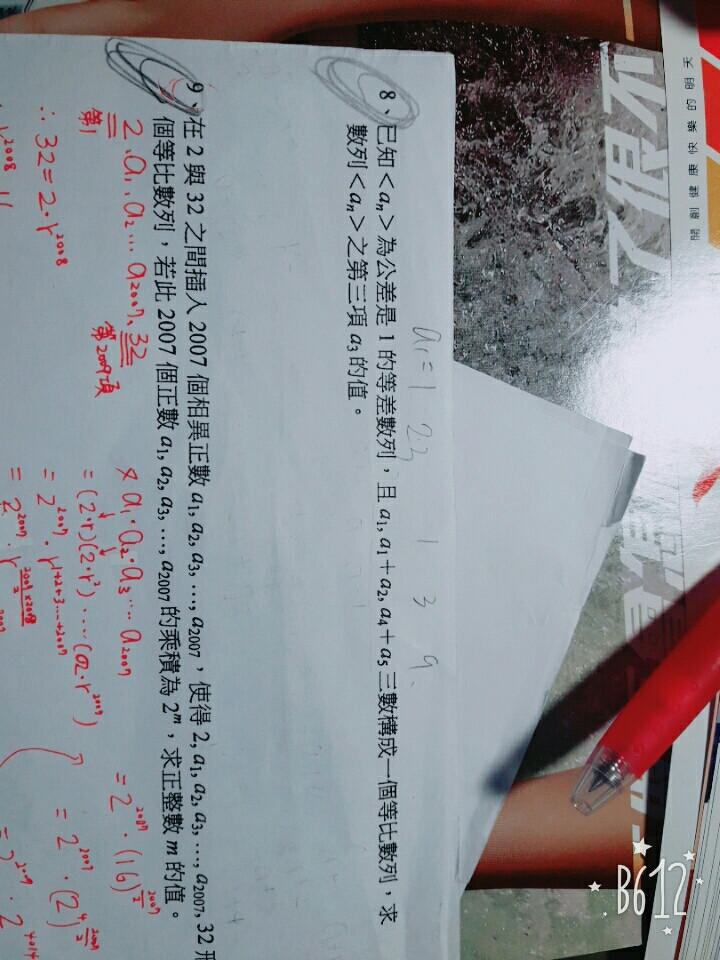 了很不
開創健康快樂的明天
8、已知<aₙ>為公差是 1 的等差數列，且 a₁, a₁+a₂, a₄+a₅ 三數構成一個等比數列，求
數列<aₙ>之第三項 a₃ 的值。
a₁=1 2 3
1 3 9
9、在 2 與 32 之間插入 2007 個相異正數 a₁, a₂, a₃, …, a₂₀₀₇，使得 2, a₁, a₂, a₃, …, a₂₀₀₇, 32 形
個等比數列，若此 2007 個正數 a₁, a₂, a₃, …, a₂₀₀₇ 的乘積為 2ᵐ，求正整數 m 的值。
2、a₁、a₂… a₂₀₀₇、32
第1
第2009項
∴ 32=2·r²⁰⁰⁸
r²⁰⁰⁸
a₁·a₂·a₃… a₂₀₀₇
=(2·r)(2·r²)……(a2·r²⁰⁰⁷)
=2²⁰⁰⁷·r^(1+2+3…+2007)
=2²⁰⁰⁷·r^(2007×2008/2)
=2²⁰⁰⁷·(16)^(2007/2)
=2²⁰⁰⁷·(2)^(4·2007/2)
B612